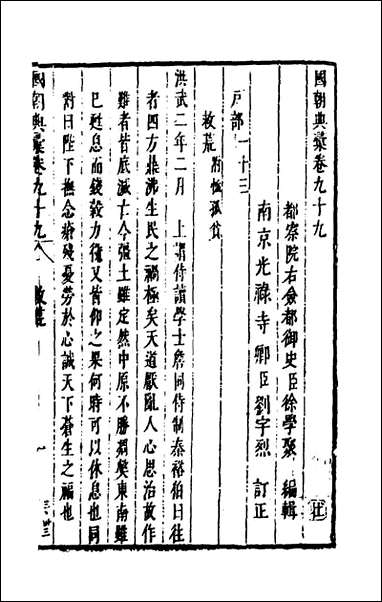 國朝典彙卷九十九
都察院右僉都御史臣徐學聚 編輯
南京光祿寺卿臣劉宇烈 訂正
戶部一十三
救荒 附恤孤貧
洪武二年二月 上謂侍讀學士詹同侍制秦裕伯曰往
者四方鼎沸生民之禍極矣天道厭亂人心思治故作
難者皆底滅亡今疆土雖定然中原不勝凋矣東南雖
已甦息而錢穀力役又皆仰之果何時可以休息也同
對曰陛下撫念瘡殘憂勞於心誠天下蒼生之福也
國朝典彙卷九十九 救荒 一